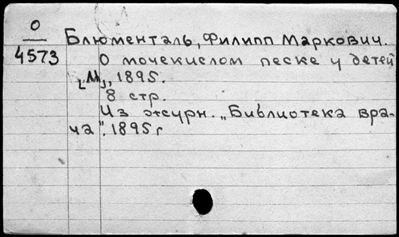 О
4573
Блюменталь, Филипп Маркович.
О мочекислом песке у детей
[М], 1895.
8 стр.
Из журн. „Библиотека вра-
ча". 1895 г